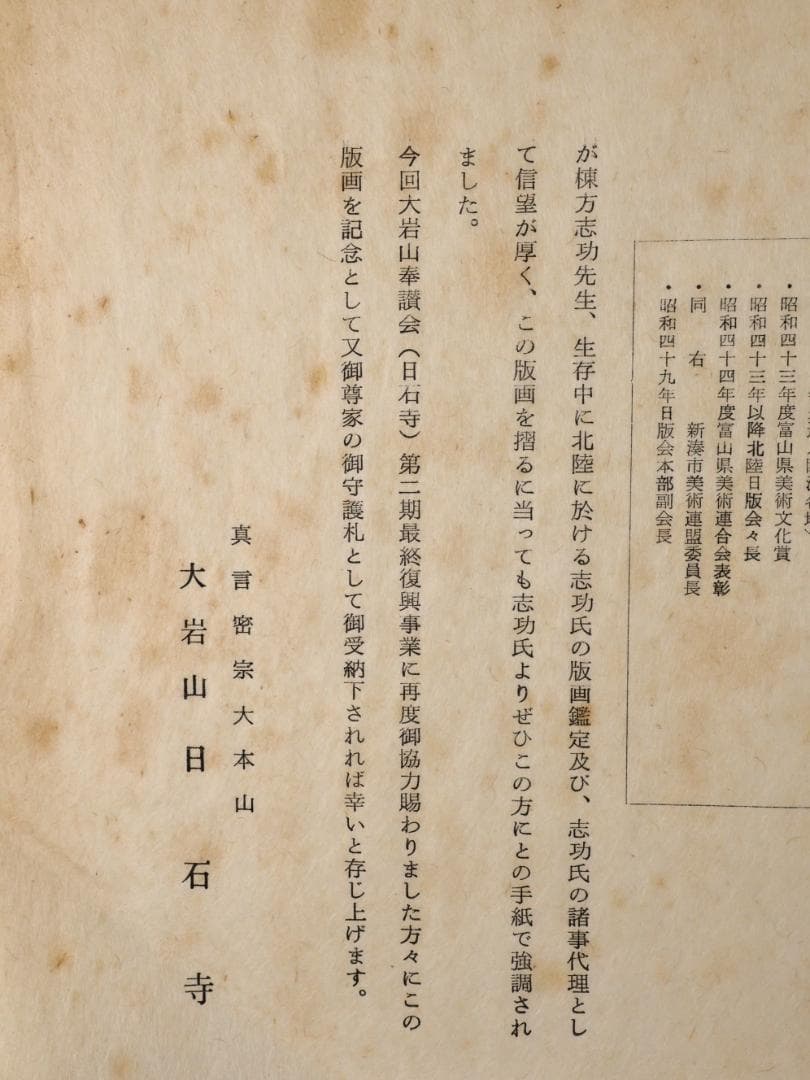 ・昭和四十三年度富山県美術文化賞
・昭和四十三年以降北陸日版会々長
・昭和四十四年度富山県美術連合会表彰
・同　右　　新湊市美術連盟委員長
・昭和四十九年日版会本部副会長
が棟方志功先生、生存中に北陸に於ける志功氏の版画鑑定及び、志功氏の諸事代理とし
て信望が厚く、この版画を摺るに当っても志功氏よりぜひこの方にとの手紙で強調され
ました。
今回大岩山奉讃会（日石寺）第二期最終復興事業に再度御協力賜わりました方々にこの
版画を記念として又御尊家の御守護札として御受納下されれば幸いと存じ上げます。
真言密宗大本山
大岩山日石寺